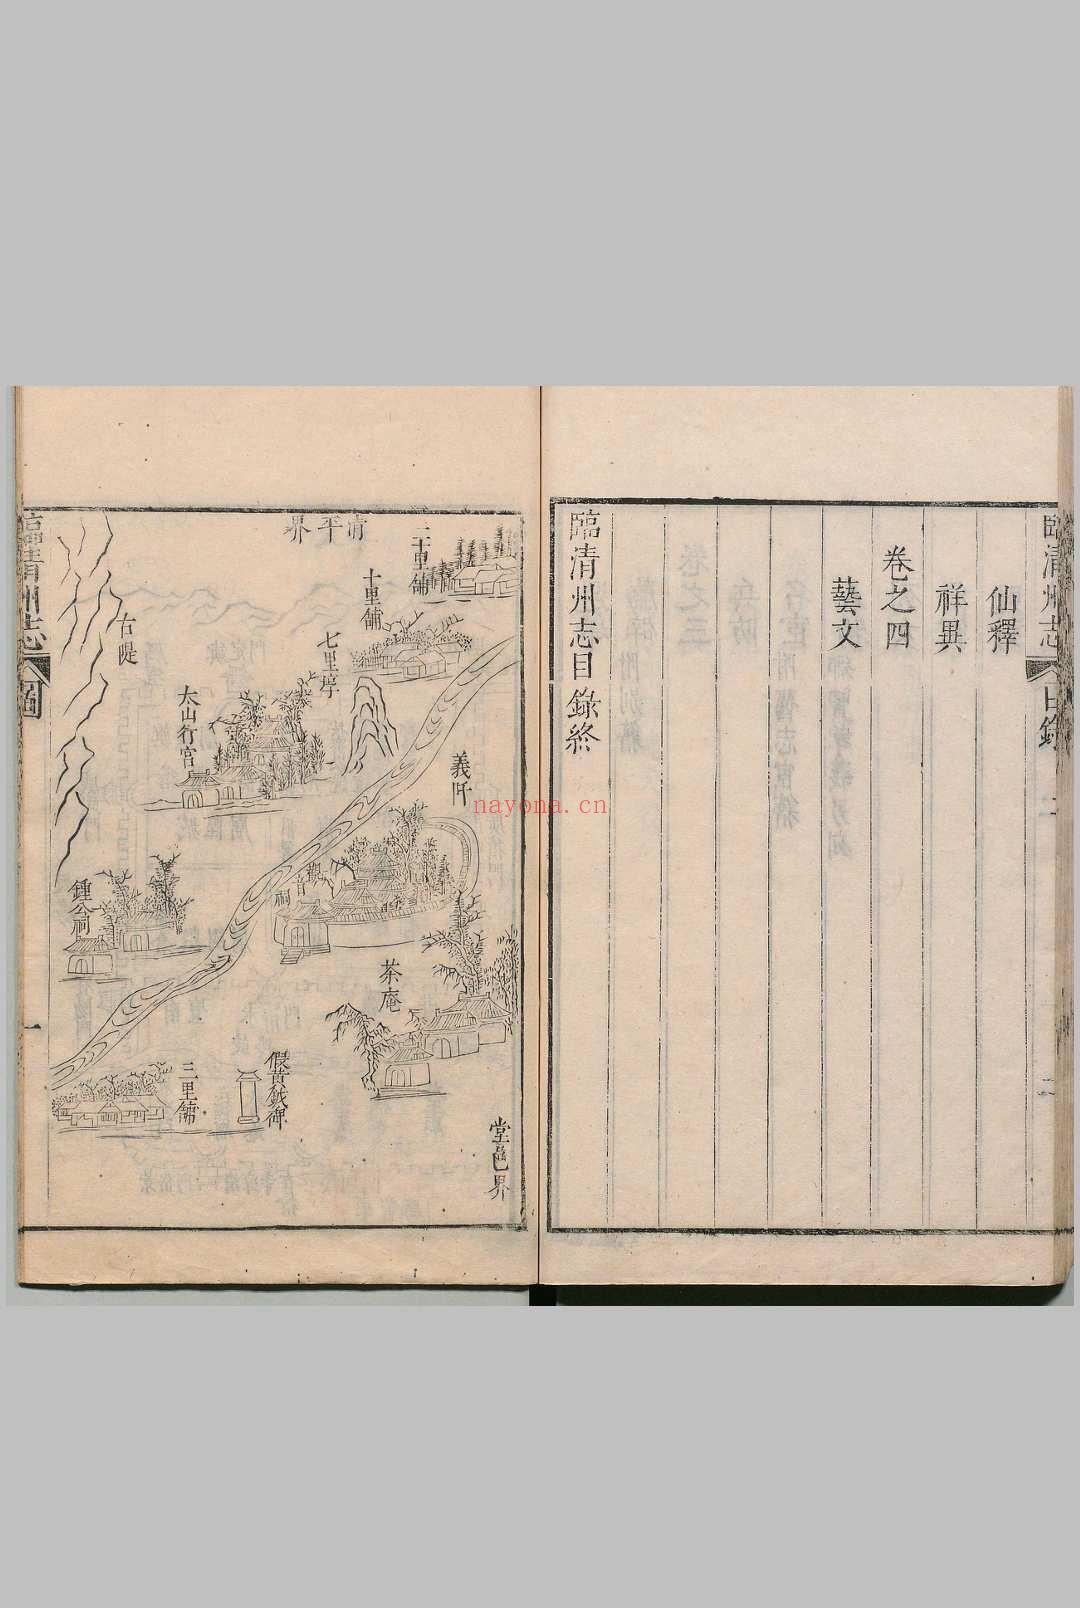 臨清州志
目錄
二
仙釋
祥異
卷之四
藝文
臨清州志目錄終
二十里舖
清平界
十里舖
七里亭
義阡
太山行宮
古隄
觀音祠
鍾公祠
茶庵
假黃鉞碑
三里舖
堂邑界
臨清州志
圖
一
nayona.cn